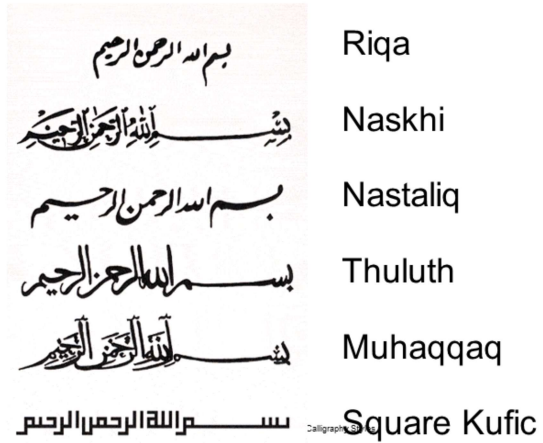 بسم الله الرحمن الرحيم Riqa
بِسْمِ اللَّهِ الرَّحْمَنِ الرَّحِيمِ Naskhi
بسم الله الرحمن الرحيم Nastaliq
بسم الله الرحمن الرحيم Thuluth
بِسْمِ اللَّهِ الرَّحْمَنِ الرَّحِيمِ Muhaqqaq
بسم الله الرحمن الرحيم Square Kufic
Calligraphy Styles